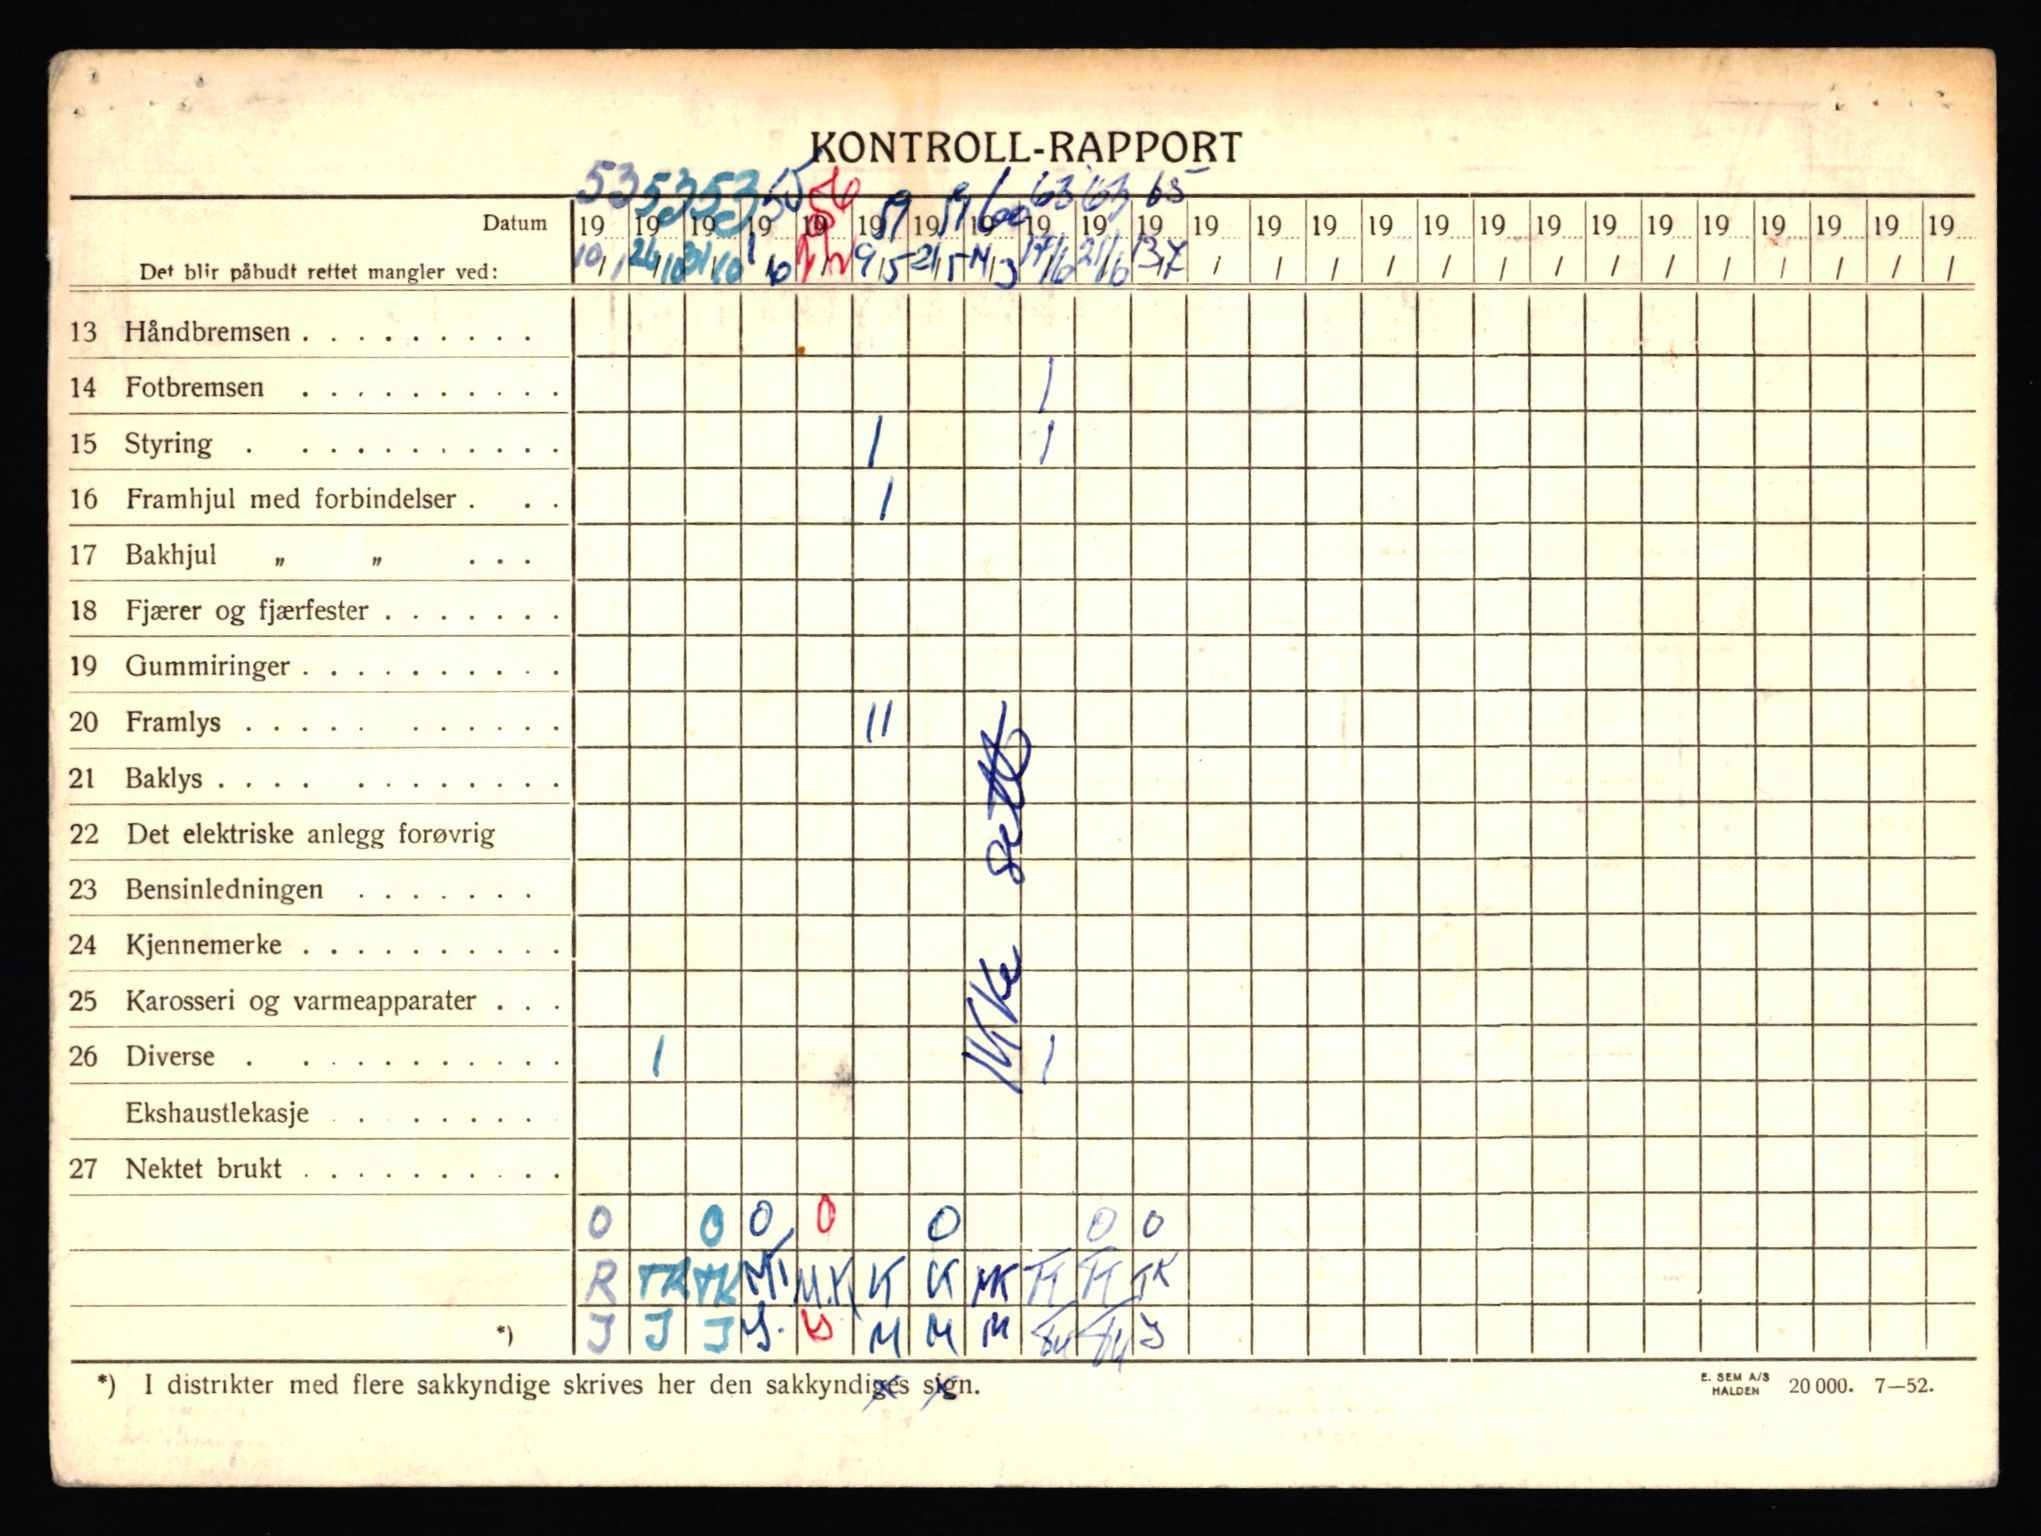 KONTROLL-RAPPORT
53 53 53 55 56 59 59 60 63 63 65
Datum 19 19 19 19 19 19 19 19 19 19 19 19 19 19 19 19 19 19 19 19 19 19 19 19 19
Det blir påbudt rettet mangler ved: 10/1 26/10 31/10 1/10 9/5 21/5 14/3 17/6 21/6 13/7 / / / / / / / / / / / / / /
13 Håndbremsen . . . . . . . . .
14 Fotbremsen . . . . . . . . . . |
15 Styring . . . . . . . . . . . | |
16 Framhjul med forbindelser . . . |
17 Bakhjul „ „ . . .
18 Fjærer og fjærfester . . . . . . .
19 Gummiringer . . . . . . . . . .
20 Framlys . . . . . . . . . . . ||
21 Baklys . . . . . . . . . . . .
22 Det elektriske anlegg forøvrig
23 Bensinledningen . . . . . . .
24 Kjennemerke . . . . . . . . . .
25 Karosseri og varmeapparater . . .
26 Diverse . . . . . . . . . . . | |
Ikke sett
Ekshaustlekasje . . . . . . . .
27 Nektet brukt . . . . . . . . . .
0 0 0 0 0 0 0
R TK TK M.K K K MK TK TK TK
*) J J J M M M J
*) I distrikter med flere sakkyndige skrives her den sakkyndiges sign.
E. SEM A/S
HALDEN 20 000. 7—52.